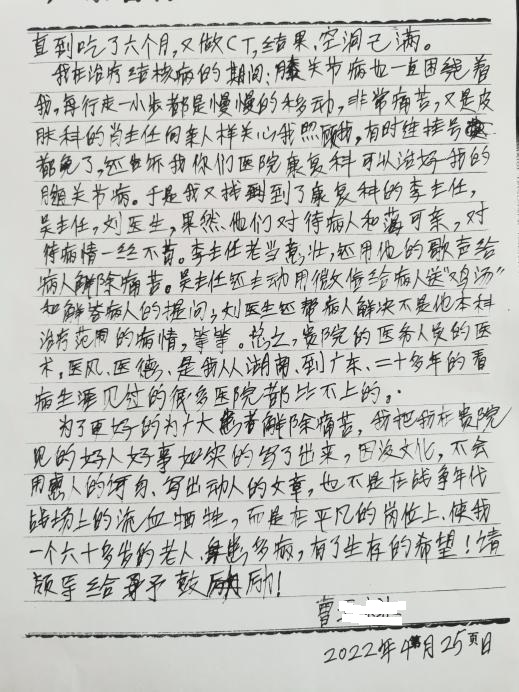 直到吃了六个月,又做CT,结果,空洞己满。
我在治疗结核病的期间,膝关节病也一直困绕着
我,每行走一小步都是慢慢的移动,非常痛苦,又是皮
肤科的肖主任向亲人样关心我照顾我,有时连挂号
都免了,还告诉我你们医院康复科可以治好我的
膝关节病。于是我又找到了康复科的李主任,
吴主任,刘医生,果然,他们对待病人和蔼可亲,对
待病情一丝不苟。李主任老当壮,还用他的歌声给
病人解除痛苦。吴主任还主动用微信给病人送"鸡汤"
和解答病人的提问,刘医生还帮病人解决不是他本科
治疗范围的病情,等等。总之,贵院的医务人员的医
术,医风、医德、是我从湖南、到广东、二十多年的看
病生涯见过的很多医院都比不上的。
为了更好的为广大患者解除痛苦,我把我在贵院
见的好人好事如实的写了出来,因没文化,不会
用惠人的词句、写出动人的文章,也不是在战争年代
战场上的流血牺牲,而是在平凡的岗位上、使我
一个六十多岁的老人、身患多病,有了生存的希望!请
领导给予鼓励!
曹
2022年4月25日